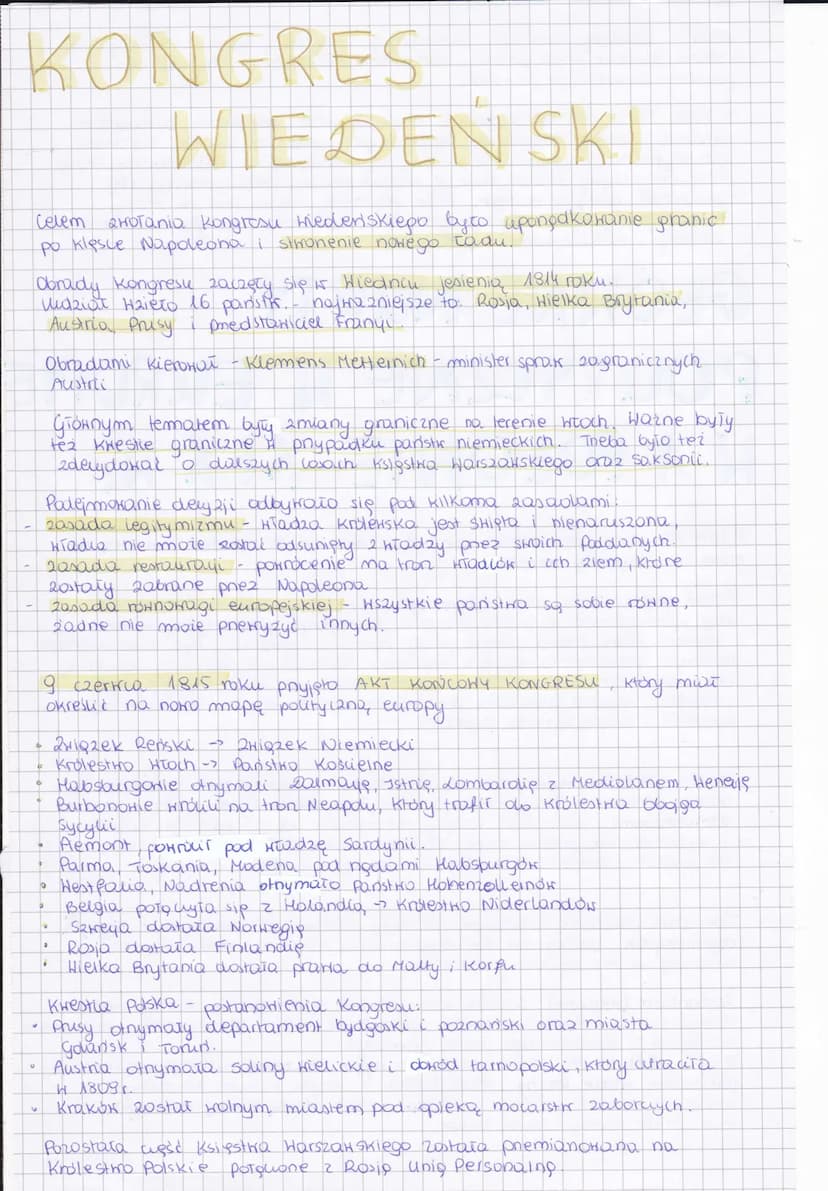 KONGRES
WIEDEŃSKI
Celem zwołania Kongresu wiedeńskiego było uporządkowanie granic
po klęsce Napoleona i stworzenie nowego ładu.
Obrady Kongresu zaczęły się w Wiedniu jesienią 1814 roku.
Udział wzięło 16 państw. - najważniejsze to: Rosja, Wielka Brytania,
Austria, Prusy i przedstawiciel Francji.
Obradami kierował - Klemens Metternich - minister spraw zagranicznych
Austrii
Głównym tematem były zmiany graniczne na terenie Włoch. Ważne były
też kwestie graniczne w przypadku państw niemieckich. Trzeba było też
zdecydować o dalszych losach Księstwa Warszawskiego oraz Saksonii.
Podejmowanie decyzji odbywało się pod kilkoma zasadami:
- zasada legitymizmu - władza królewska jest święta i nienaruszona,
władca nie może zostać odsunięty z władzy przez swoich poddanych.
- zasada restauracji - powrócenie na tron władców i ich ziem, które
zostały zabrane przez Napoleona
- zasada równowagi europejskiej - wszystkie państwa są sobie równe,
żadne nie może przewyżyć innych.
9 czerwca 1815 roku przyjęto AKT KOŃCOWY KONGRESU, który miał
określić na nowo mapę polityczną europy
• Związek Reński -> Związek Niemiecki
• Królestwo Włoch -> Państwo Kościelne
• Habsburgowie otrzymali Dalmację, Istrię, Lombardię z Mediolanem, Wenecję
• Burbonowie wrócili na tron Neapolu, który trafił do Królestwa Obojga
Sycylii
• Piemont powrócił pod władzę Sardynii.
• Parma, Toskania, Modena pod rządami Habsburgów
• Westfalia, Nadrenia otrzymało Państwo Hohenzollernów
• Belgia połączyła się z Holandią -> Królestwo Niderlandów
• Szwecja dostała Norwegię
• Rosja dostała Finlandię
• Wielka Brytania dostała prawa do Malty i Korfu
Kwestia Polska - postanowienia Kongresu:
• Prusy otrzymały departament bydgoski i poznański oraz miasta
Gdańsk i Toruń.
• Austria otrzymała soliny wielickie i obwód tarnopolski, który utraciła
w 1809r.
• Kraków został wolnym miastem pod opieką mocarstw zaborczych.
Pozostała część Księstwa Warszawskiego została przemianowana na
Królestwo Polskie połączone z Rosją Unią Personalną.